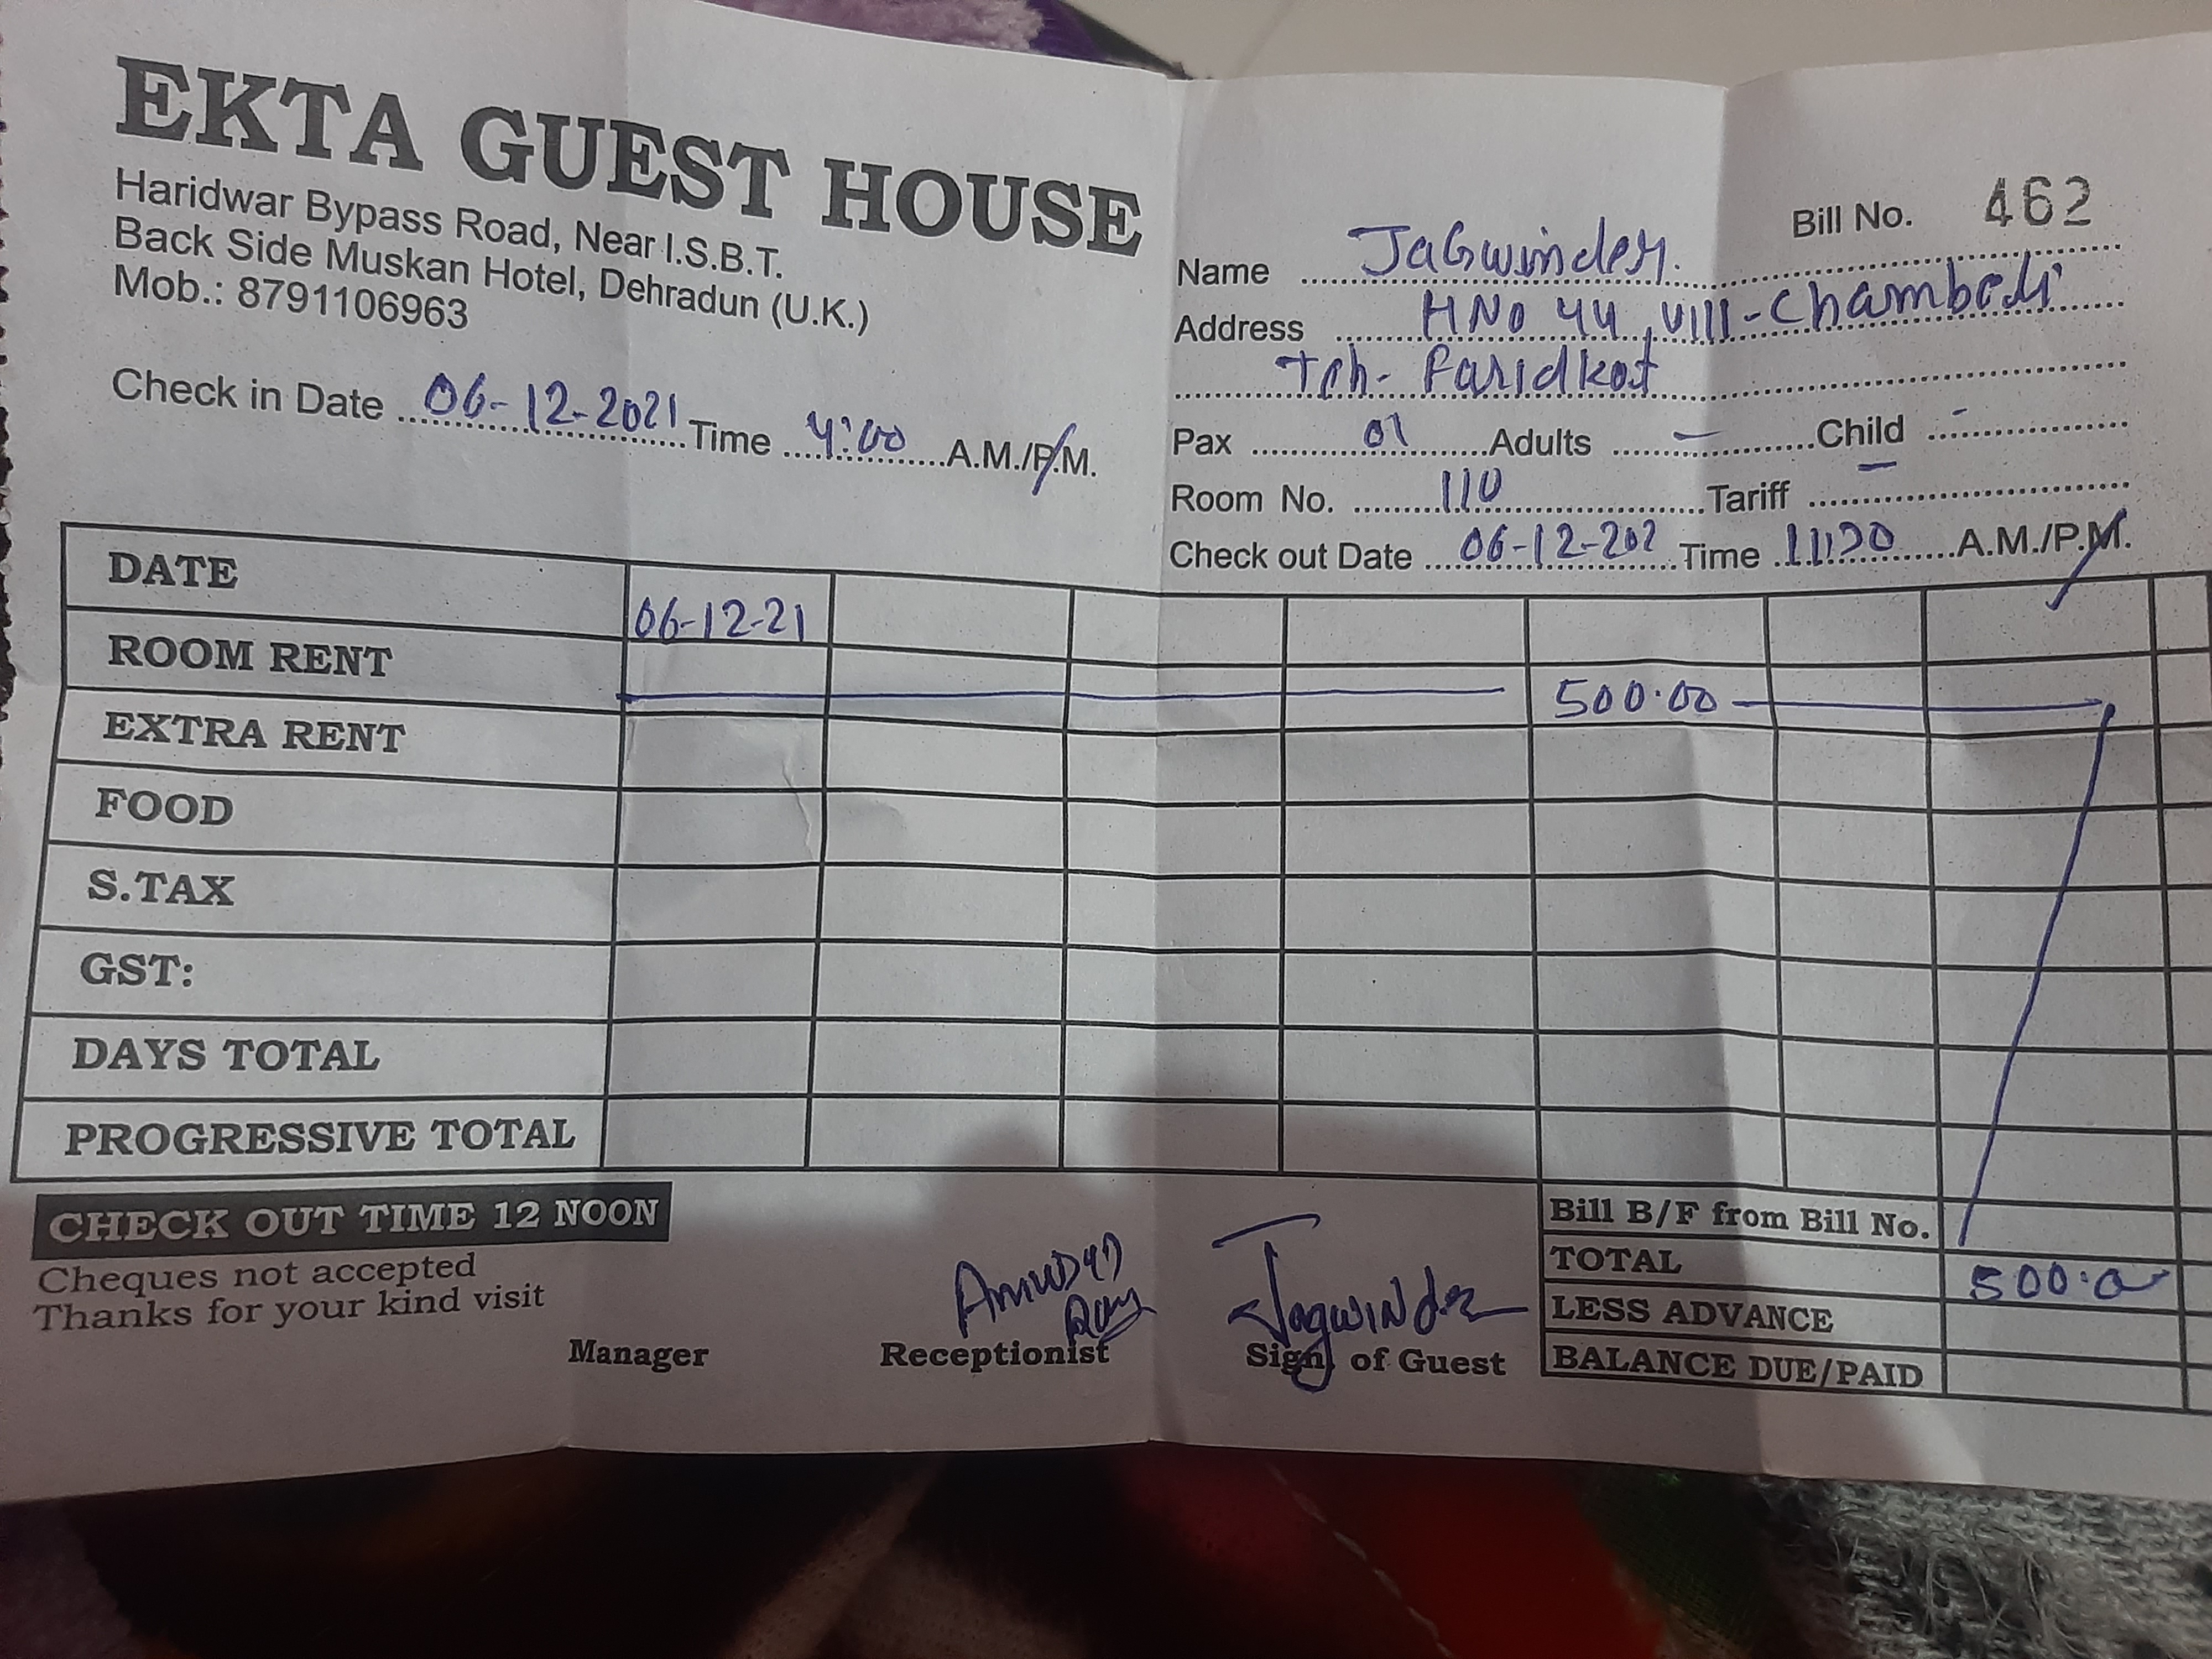 EKTA GUEST HOUSE
Haridwar Bypass Road, Near I.S.B.T.
Back Side Muskan Hotel, Dehradun (U.K.)
Mob.: 8791106963
Check in Date 06-12-2021 Time 4:00 A.M./P.M.
Bill No. 462
Name Jagwinder.
Address HNo 44, Vill-Chambeli
Teh- Faridkot
Pax 01 Adults – Child -
Room No. 110 Tariff –
Check out Date 06-12-202 Time A.M./P.M.
DATE 06-12-21
ROOM RENT 500.00
EXTRA RENT
FOOD
S.TAX
GST:
DAYS TOTAL
PROGRESSIVE TOTAL
CHECK OUT TIME 12 NOON
Cheques not accepted
Thanks for your kind visit
Manager
Receptionist
Jagwinder
Sign. of Guest
Bill B/F from Bill No.
TOTAL 500.0
LESS ADVANCE
BALANCE DUE/PAID